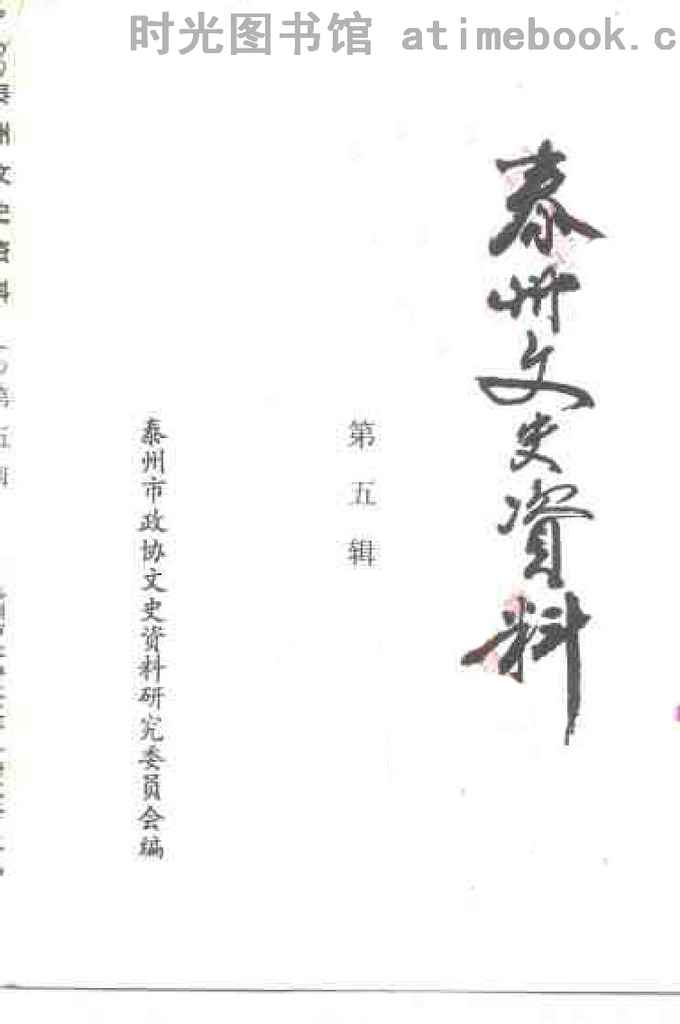 时光图书馆 atimebook.c
泰州文史資料
第五辑
泰州市政协文史资料研究委员会编
泰州文史资料
第五辑